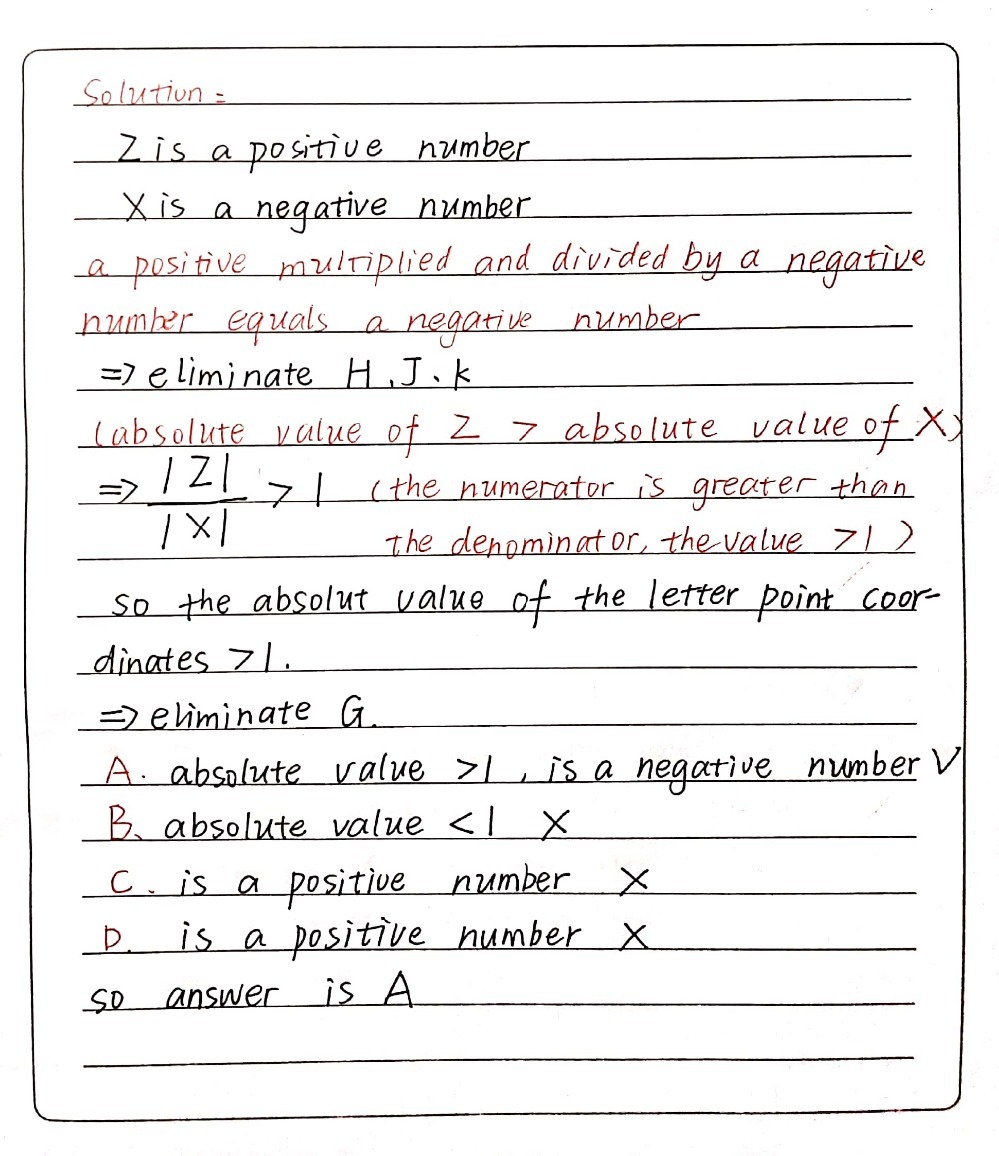 Solution=
Z is a positive number
X is a negative number
a positive multiplied and divided by a negative
number equals a negative number
=> eliminate H.J.k
(absolute value of Z > absolute value of X)
=> |Z| / |X| > 1 (the numerator is greater than
the denominator, the value >1)
so the absolut value of the letter point coor-
dinates >1.
=> eliminate G.
A. absolute value >1, is a negative number V
B. absolute value <1 X
C. is a positive number X
D. is a positive number X
so answer is A